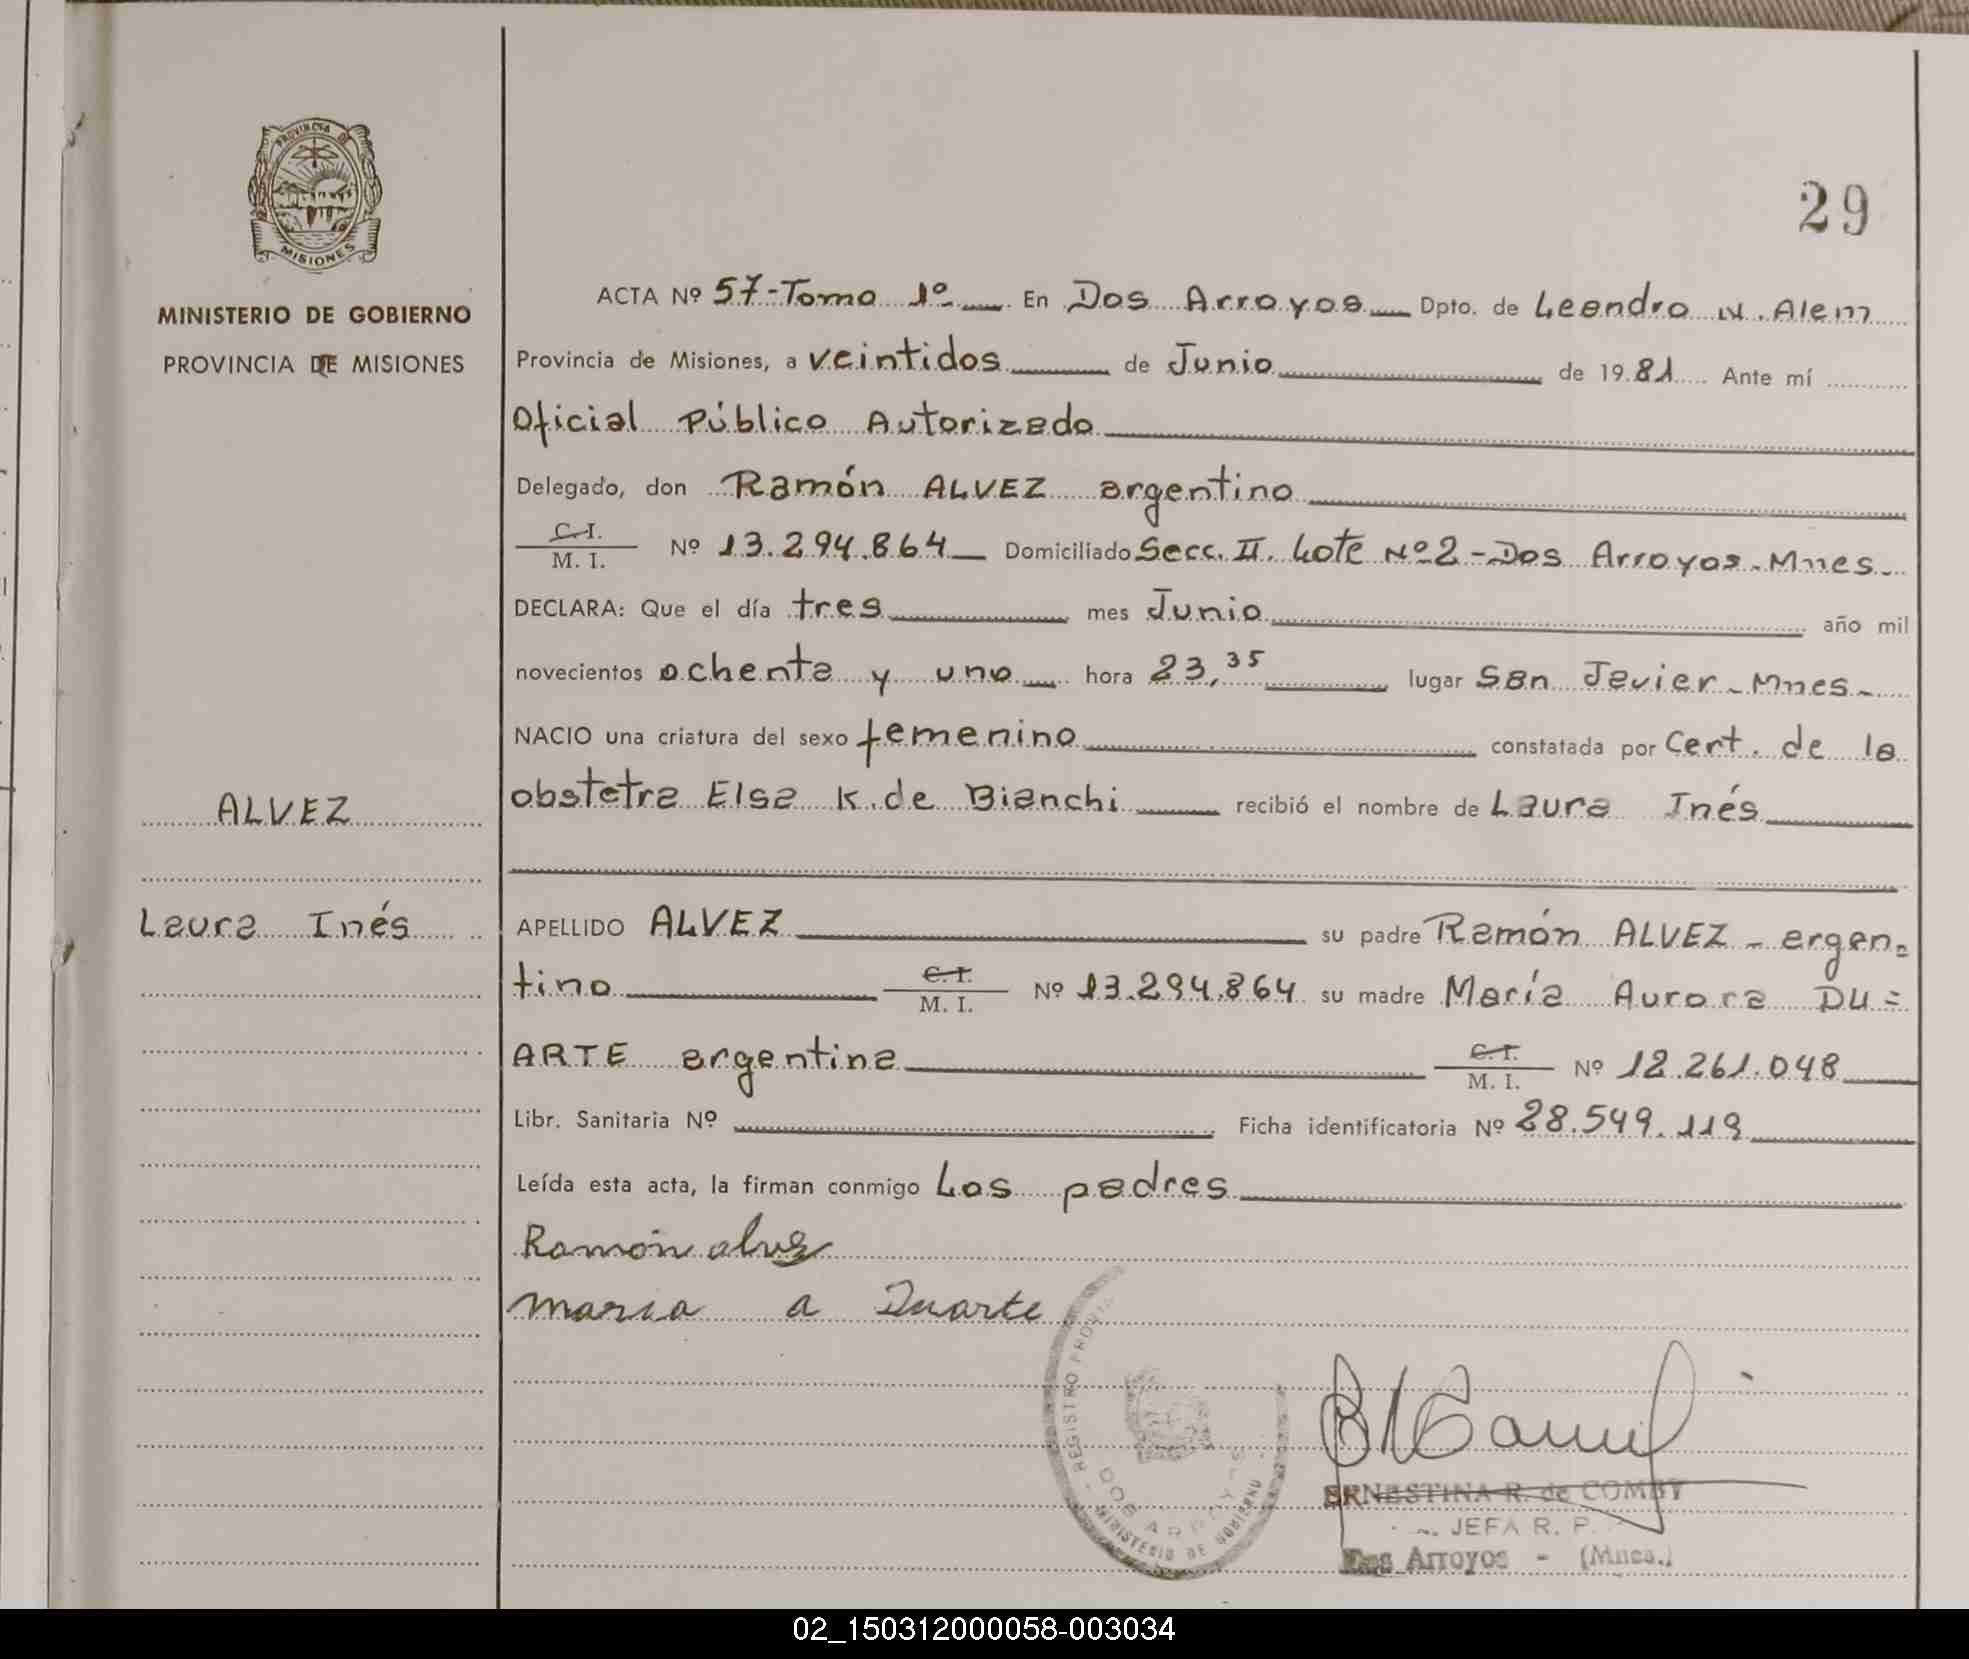 PROVINCIA DE
MISIONES
MINISTERIO DE GOBIERNO
PROVINCIA DE MISIONES
ALVEZ
Laura Inés
29
ACTA Nº 57-Tomo 1º En Dos Arroyos Dpto. de Leandro N. Alem
Provincia de Misiones, a veintidos de Junio de 1981 Ante mí
Oficial Público Autorizado
Delegado, don Ramón ALVEZ argentino
C. I.
M. I.
Nº 13.294.864 Domiciliado Secc. II. Lote Nº2-Dos Arroyos-Mnes-
DECLARA: Que el día tres mes Junio año mil
novecientos ochenta y uno hora 23,35 lugar San Javier-Mnes-
NACIO una criatura del sexo femenino constatada por Cert. de la
obstetra Elsa K. de Bianchi recibió el nombre de Laura Inés
APELLIDO ALVEZ su padre Ramón ALVEZ - argen=
tino C. I. M. I. Nº 13.294.864 su madre María Aurora DU=
ARTE argentina C. I. M. I. Nº 12.261.048
Libr. Sanitaria Nº Ficha identificatoria Nº 28.549.119
Leída esta acta, la firman conmigo Los padres
Ramón alvez
maria a Duarte
REGISTRO PROVIN
DOS ARROYOS
MINISTERIO DE GOBIERNO
ERNESTINA R. de COMBY
JEFA R. P.
Dos Arroyos - (Mnes.)
02_150312000058-003034